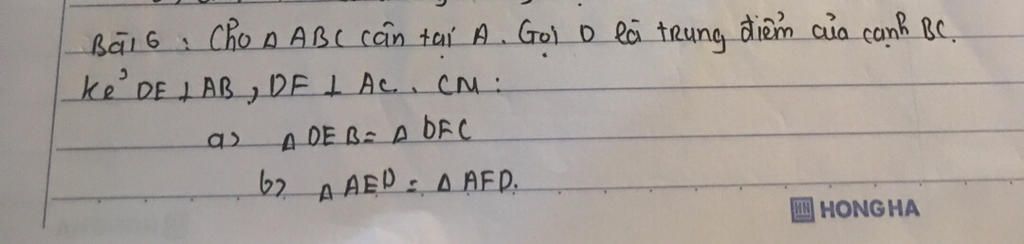 Bài 6 : Cho Δ ABC cân tại A. Gọi D là trung điểm của cạnh BC.
Kẻ DE ⊥ AB, DF ⊥ AC. CM :
a) Δ DEB = Δ DFC
b) Δ AED = Δ AFD.
HONG HA